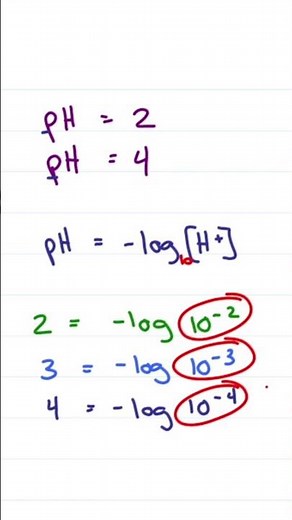 pH = 2
pH = 4
pH = -log₁₀[H+]
2 = -log 10⁻²
3 = -log 10⁻³
4 = -log 10⁻⁴